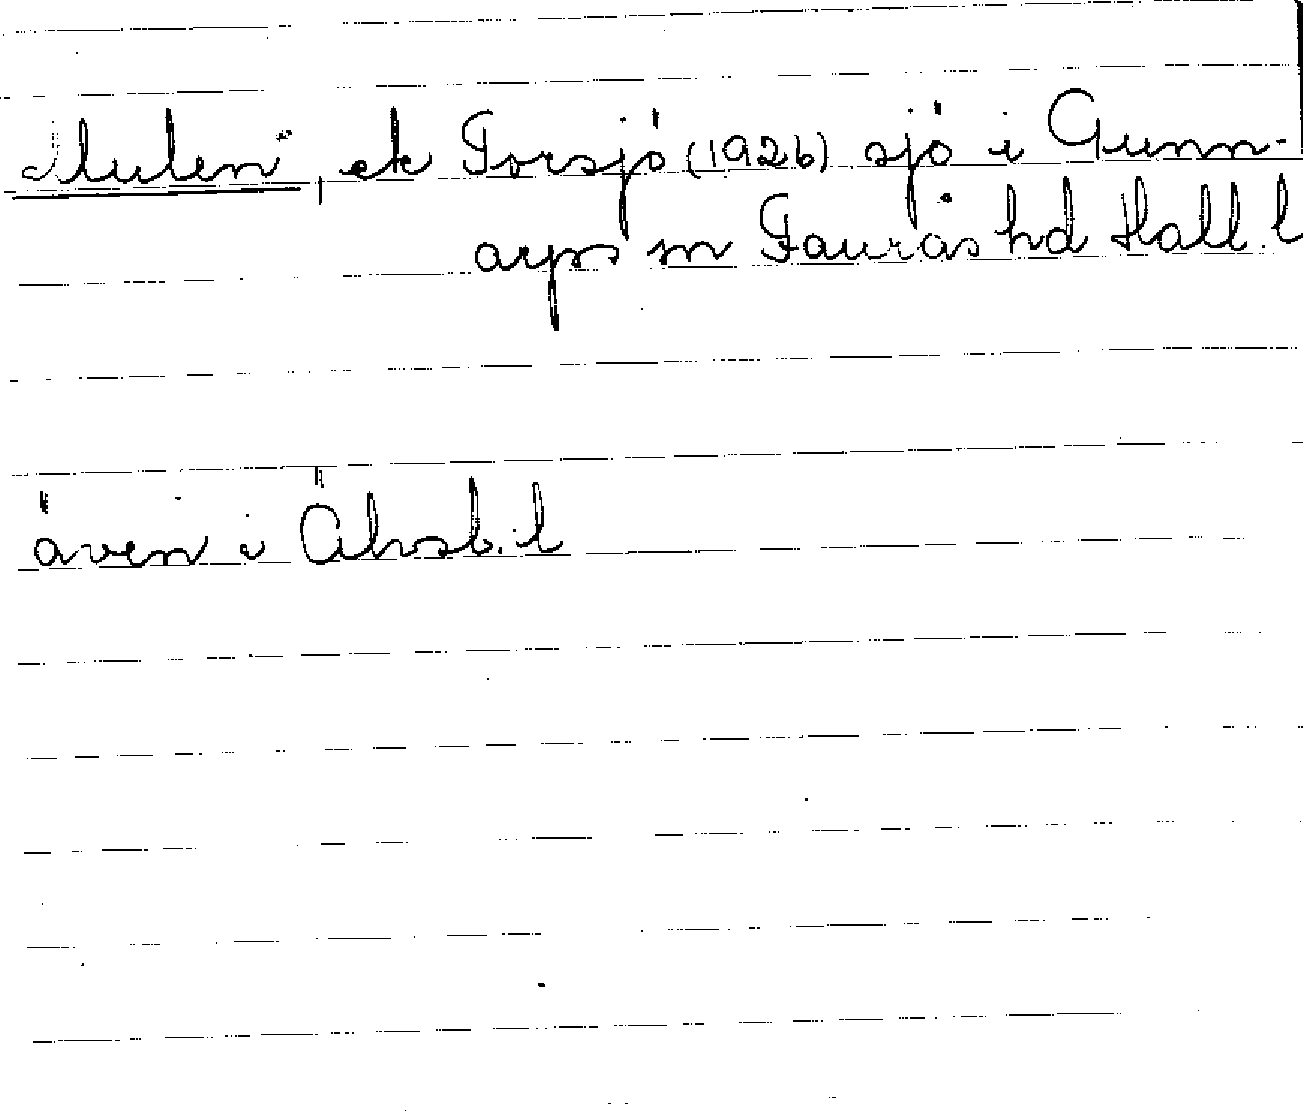 Mulen, ek Torsjö (1926) sjö i Gunn-
arps sn Faurås hd Hall. l
även i Älvsb. l